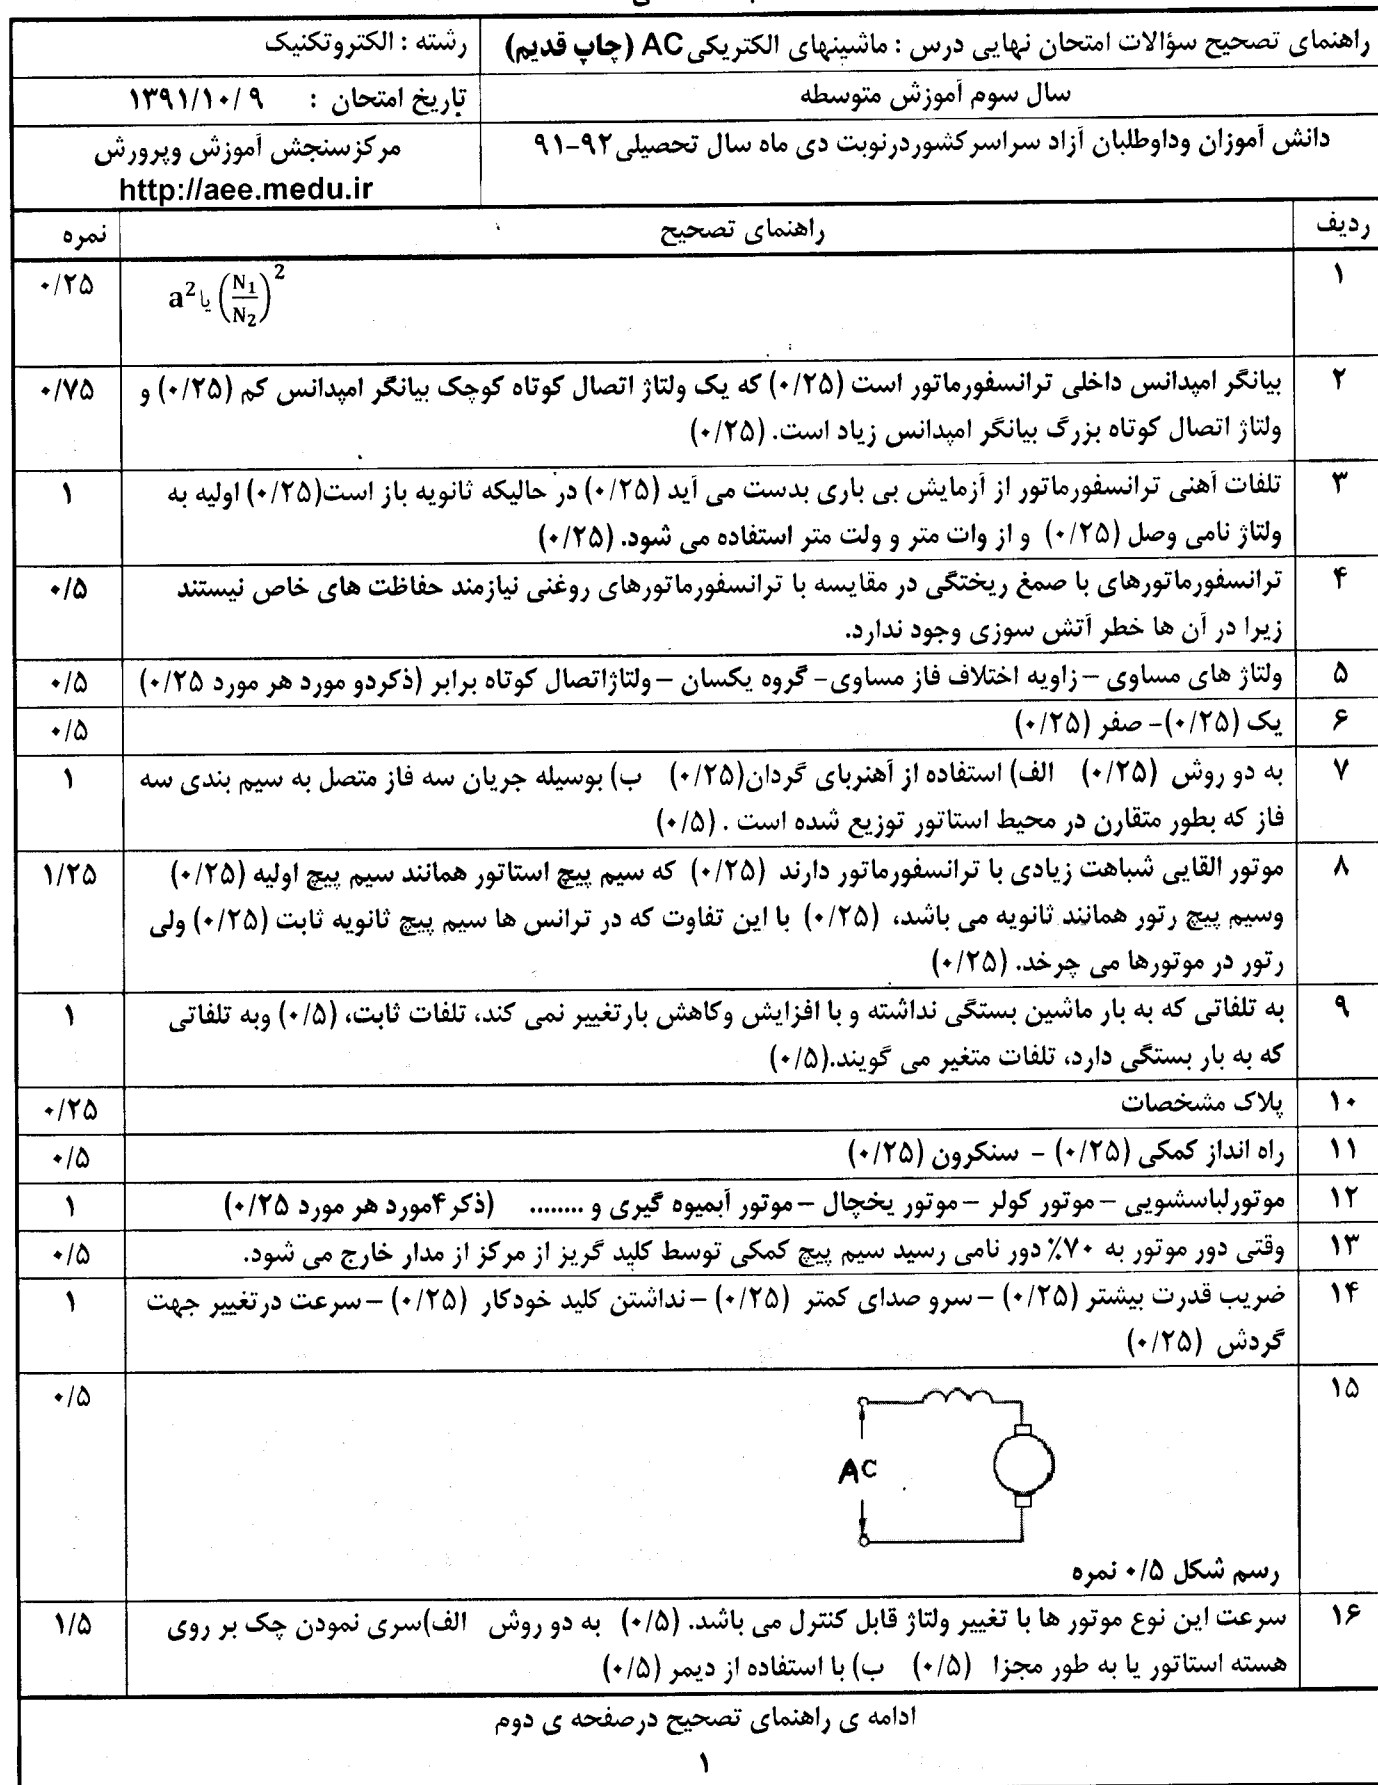 راهنمای تصحیح سؤالات امتحان نهایی درس : ماشینهای الکتریکی AC (چاپ قدیم)
رشته : الکتروتکنیک
سال سوم آموزش متوسطه
تاریخ امتحان : ۱۳۹۱/۱۰/۹
دانش آموزان وداوطلبان آزاد سراسرکشوردرنوبت دی ماه سال تحصیلی ۹۲-۹۱
مرکزسنجش آموزش وپرورش
http://aee.medu.ir
ردیف راهنمای تصحیح نمره
۱ a² یا (N₁/N₂)² ۰/۲۵
۲ بیانگر امپدانس داخلی ترانسفورماتور است (۰/۲۵) که یک ولتاژ اتصال کوتاه کوچک بیانگر امپدانس کم (۰/۲۵) و ۰/۷۵
ولتاژ اتصال کوتاه بزرگ بیانگر امپدانس زیاد است. (۰/۲۵)
۳ تلفات آهنی ترانسفورماتور از آزمایش بی باری بدست می آید (۰/۲۵) در حالیکه ثانویه باز است(۰/۲۵) اولیه به ۱
ولتاژ نامی وصل (۰/۲۵) و از وات متر و ولت متر استفاده می شود. (۰/۲۵)
۴ ترانسفورماتورهای با صمغ ریختگی در مقایسه با ترانسفورماتورهای روغنی نیازمند حفاظت های خاص نیستند ۰/۵
زیرا در آن ها خطر آتش سوزی وجود ندارد.
۵ ولتاژ های مساوی – زاویه اختلاف فاز مساوی- گروه یکسان – ولتاژاتصال کوتاه برابر (ذکردو مورد هر مورد ۰/۲۵) ۰/۵
۶ یک (۰/۲۵)- صفر (۰/۲۵) ۰/۵
۷ به دو روش (۰/۲۵) الف) استفاده از آهنربای گردان(۰/۲۵) ب) بوسیله جریان سه فاز متصل به سیم بندی سه ۱
فاز که بطور متقارن در محیط استاتور توزیع شده است . (۰/۵)
۸ موتور القایی شباهت زیادی با ترانسفورماتور دارند (۰/۲۵) که سیم پیچ استاتور همانند سیم پیچ اولیه (۰/۲۵) ۱/۲۵
وسیم پیچ رتور همانند ثانویه می باشد، (۰/۲۵) با این تفاوت که در ترانس ها سیم پیچ ثانویه ثابت (۰/۲۵) ولی
رتور در موتورها می چرخد. (۰/۲۵)
۹ به تلفاتی که به بار ماشین بستگی نداشته و با افزایش وکاهش بارتغییر نمی کند، تلفات ثابت، (۰/۵) وبه تلفاتی ۱
که به بار بستگی دارد، تلفات متغیر می گویند.(۰/۵)
۱۰ پلاک مشخصات ۰/۲۵
۱۱ راه انداز کمکی (۰/۲۵) - سنکرون (۰/۲۵) ۰/۵
۱۲ موتورلباسشویی – موتور کولر – موتور یخچال – موتور آبمیوه گیری و ........ (ذکر ۴مورد هر مورد ۰/۲۵) ۱
۱۳ وقتی دور موتور به ۷۰٪ دور نامی رسید سیم پیچ کمکی توسط کلید گریز از مرکز از مدار خارج می شود. ۰/۵
۱۴ ضریب قدرت بیشتر (۰/۲۵) – سرو صدای کمتر (۰/۲۵) – نداشتن کلید خودکار (۰/۲۵) – سرعت درتغییر جهت ۱
گردش (۰/۲۵)
۱۵ ۰/۵
AC
رسم شکل ۰/۵ نمره
۱۶ سرعت این نوع موتور ها با تغییر ولتاژ قابل کنترل می باشد. (۰/۵) به دو روش الف)سری نمودن چک بر روی ۱/۵
هسته استاتور یا به طور مجزا (۰/۵) ب) با استفاده از دیمر (۰/۵)
ادامه ی راهنمای تصحیح درصفحه ی دوم
۱